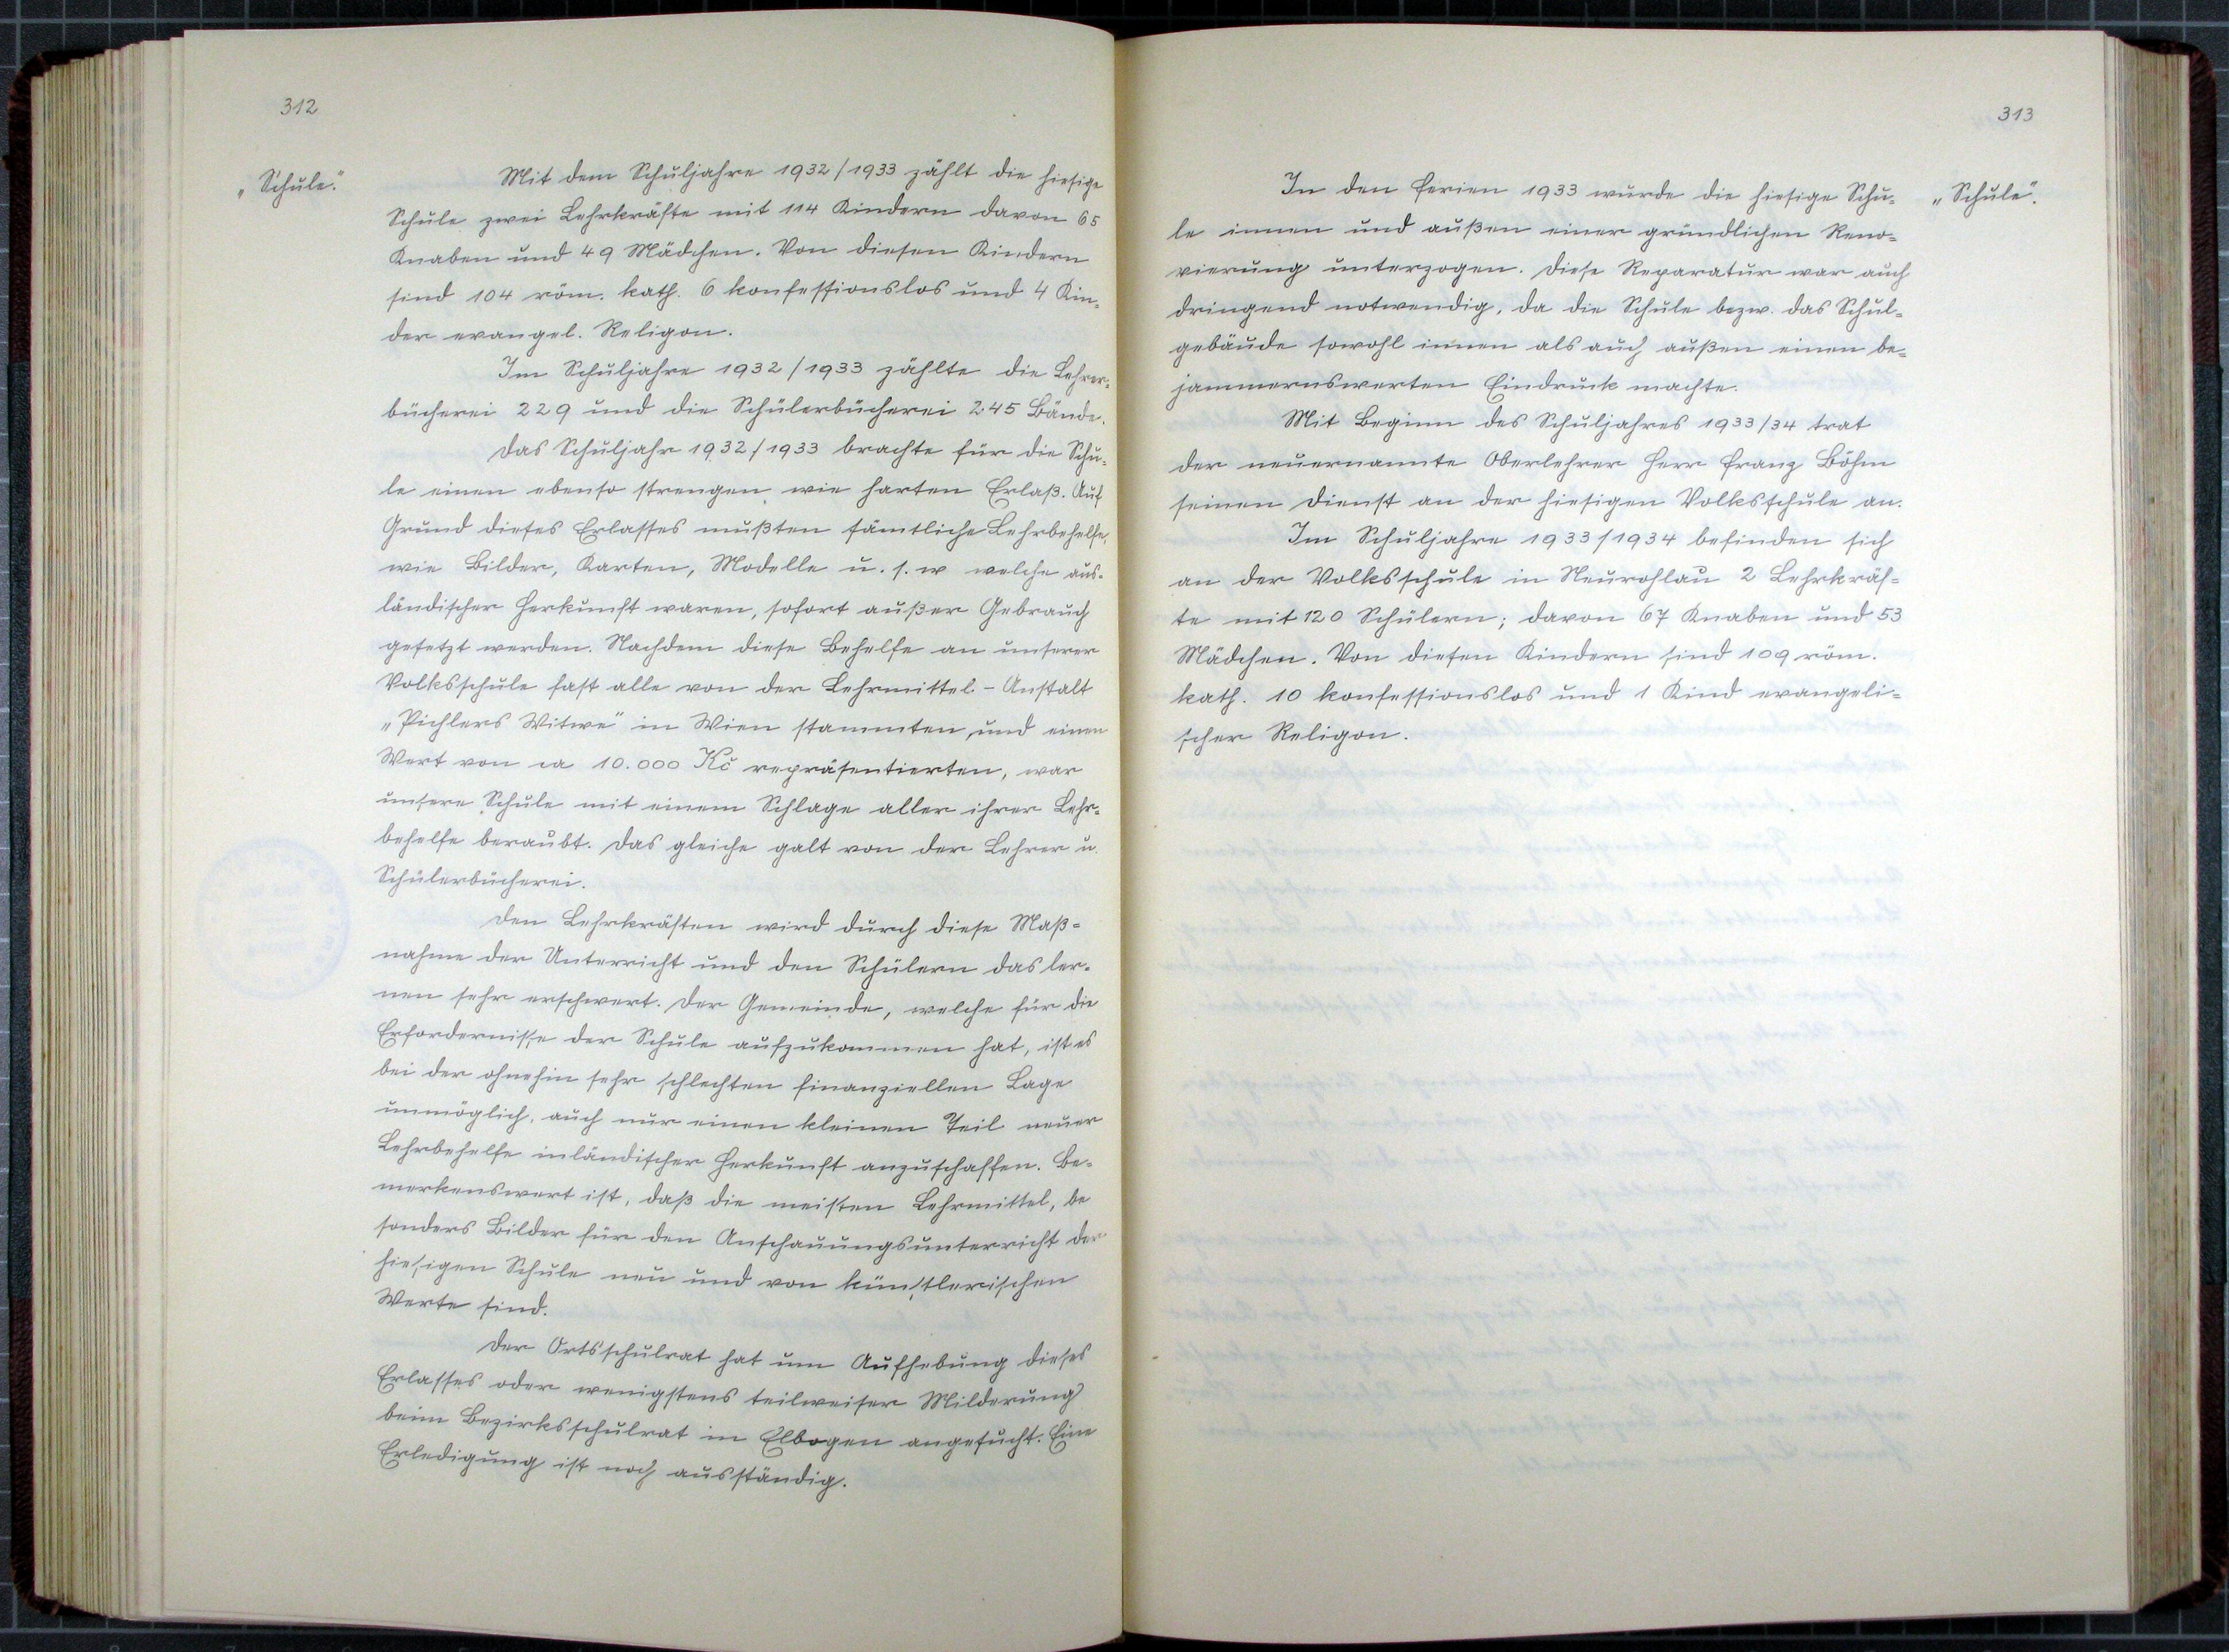 312
„Schule."
Mit dem Schuljahre 1932/1933 zählt die hiesige
Schule zwei Lehrkräfte mit 114 Kindern davon 65
Knaben und 49 Mädchen. Von diesen Kindern
sind 104 röm. kath. 6 konfessionslos und 4 Kin-
der evangel. Religon.
Im Schuljahre 1932/1933 zählte die Lehrer-
bücherei 229 und die Schülerbücherei 245 Bände.
Das Schuljahr 1932/1933 brachte für die Schu-
le einen ebenso strengen wie harten Erlaß. Auf
Grund dieses Erlasses mußten sämtliche Lehrbehelfe,
wie Bilder, Karten, Modelle u. s. w welche aus-
ländischer Herkunft waren, sofort außer Gebrauch
gesetzt werden. Nachdem diese Behelfe an unserer
Volksschule fast alle von der Lehrmittel-Anstalt
„Pichlers Witwe" in Wien stammten, und einen
Wert von ca 10.000 Kč repräsentierten, war
unsere Schule mit einem Schlage aller ihrer Lehr-
behelfe beraubt. Das gleiche galt von der Lehrer u.
Schülerbücherei.
Den Lehrkräften wird durch diese Maß-
nahme der Unterricht und den Schülern das ler-
nen sehr erschwert. Der Gemeinde, welche für die
Erfordernisse der Schule aufzukommen hat, ist es
bei der ohnehin sehr schlechten finanziellen Lage
unmöglich, auch nur einen kleinen Teil neuer
Lehrbehelfe inländischer Herkunft anzuschaffen. Be-
merkenswert ist, daß die meisten Lehrmittel, be
sonders Bilder für den Anschauungsunterricht der
hiesigen Schule neu und von künstlerischen
Werte sind.
Der Ortsschulrat hat um Aufhebung dieses
Erlasses oder wenigstens teilweiser Milderung
beim Bezirksschulrat in Elbogen angesucht. Eine
Erledigung ist noch ausständig.
313
„Schule".
In den Ferien 1933 wurde die hiesige Schu-
le innen und außen einer gründlichen Reno-
vierung unterzogen. Diese Reparatur war auch
dringend notwendig, da die Schule bezw. das Schul-
gebäude sowohl innen als auch außen einen be-
jammernswerten Eindruck machte.
Mit Beginn des Schuljahres 1933/34 trat
der neuernannte Oberlehrer Herr Franz Böhm
seinen Dienst an der hiesigen Volksschule an.
Im Schuljahre 1933/1934 befinden sich
an der Volksschule in Neurohlau 2 Lehrkräf-
te mit 120 Schülern; davon 67 Knaben und 53
Mädchen. Von diesen Kindern sind 109 röm.
kath. 10 konfessionslos und 1 Kind evangeli-
scher Religon.